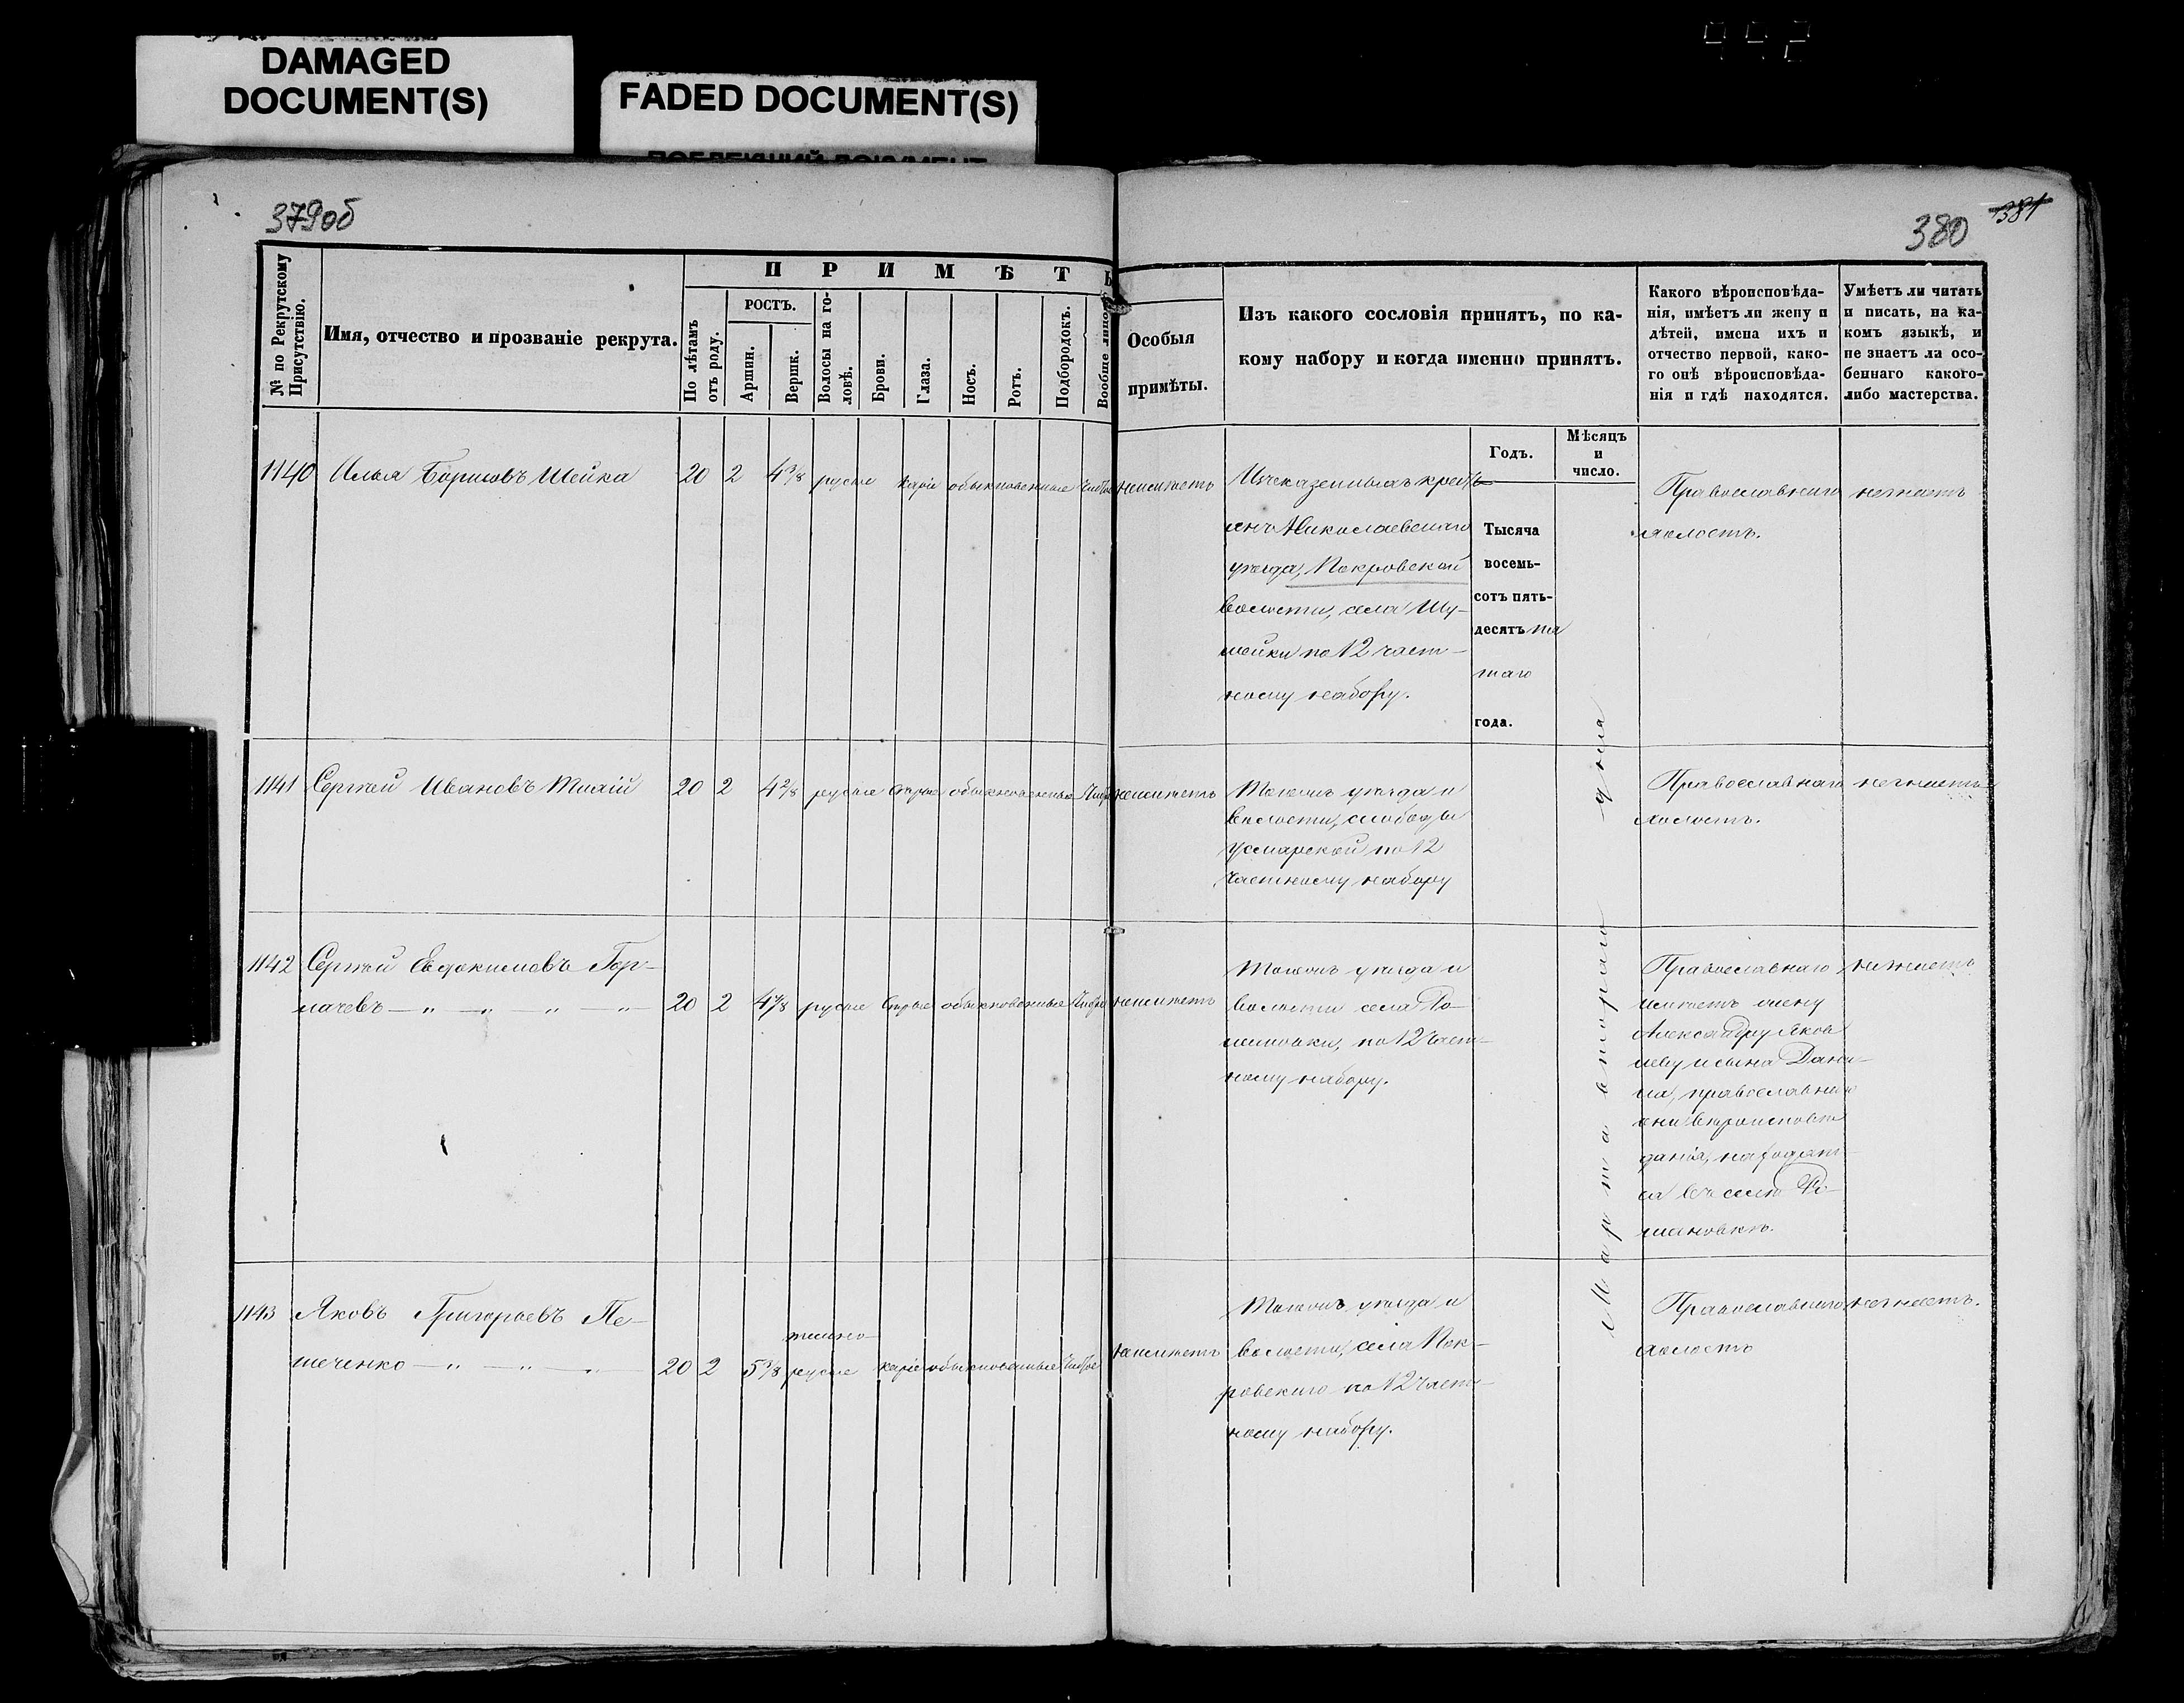 DAMAGED
DOCUMENT(S)
FADED DOCUMENT(S)
379об
380
381
№ по Рекрутскому Присутствію.
Имя, отчество и прозваніе рекрута.
ПРИМѢТЫ
По лѣтамъ отъ роду.
РОСТЪ.
Аршин.
Вершк.
Волосы на головѣ.
Брови.
Глаза.
Носъ.
Ротъ.
Подбородокъ.
Особыя
примѣты.
Изъ какого сословія принятъ, по ка-
кому набору и когда именно принятъ.
Какого вѣроисповѣда-
нія, имѣетъ ли жену и
дѣтей, имена ихъ и
отчество первой, како-
го онѣ вѣроисповѣда-
нія и гдѣ находятся.
Умѣетъ ли читать
и писать, на ка-
комъ языкѣ, и
не знаетъ ли осо-
беннаго какого-
либо мастерства.
Годъ.
Мѣсяцъ
и
число.
1140 Илья Борисовъ Шейка 20 2 4 3/8 русые каріе обыкновенные Чистое неимѣетъ
Изъ казенныхъ кресть
янъ Николаевскаго
уѣзда, Покровской
волости, села
по 12 част-
ному набору.
Тысяча
восемь-
сотъ пять-
десятъ пя
таго
года.
Марта втораго дня
Православнаго
холостъ.
незнаетъ
1141 Сергѣй Ивановъ 20 2 4 2/8 русые Сѣрые обыкновенные неимѣетъ
Тогожъ уѣзда и
волости, слободы
Узморской по 12
частному набору
Православнаго
холостъ.
незнаетъ
1142 Сергѣй Евдокимовъ Гор-
мачевъ — „ — „ — „ — „ — 20 2 русые Сѣрые обыкновенные неимѣетъ
Тогожъ уѣзда и
волости села Ро-
мановки, по 12 част-
ному набору.
Православнаго
имѣетъ жену
Александру Яков
леву и сына Дани-
ла, православнаго
они вѣроисповѣ
данія, находят-
ся въ селѣ Ро-
мановкѣ.
незнаетъ
1143 Яковъ Григорьевъ Пе-
шеченко — „ — „ — „ — 20 2 темно-
русые каріе обыкновенные Чистое неимѣетъ
Тогожъ уѣзда и
волости, села Пок-
ровскаго по 12 част-
ному набору.
Православнаго
холостъ
незнаетъ.